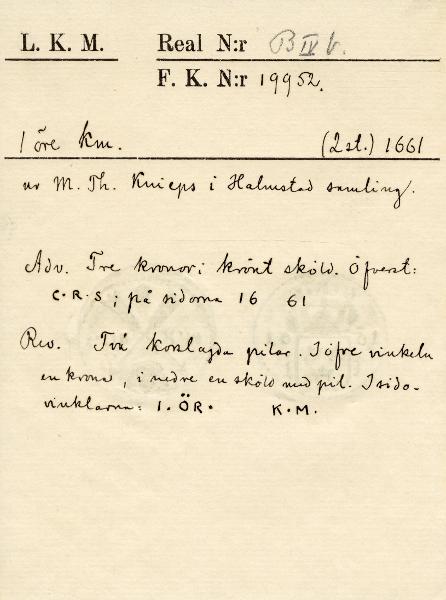 L. K. M. Real N:r B IV b.
F. K. N:r 19952.
1 öre km. (2 st.) 1661
ur M. Th. Knieps i Halmstad samling.
Adv. Tre kronor i krönt sköld. Öfverst:
C·R·S; på sidorna 16 61
Rev. Två korslagda pilar. I öfre vinkeln
en krona, i nedre en sköld med pil. I sido-
vinklarna: 1. ÖR. K.M.